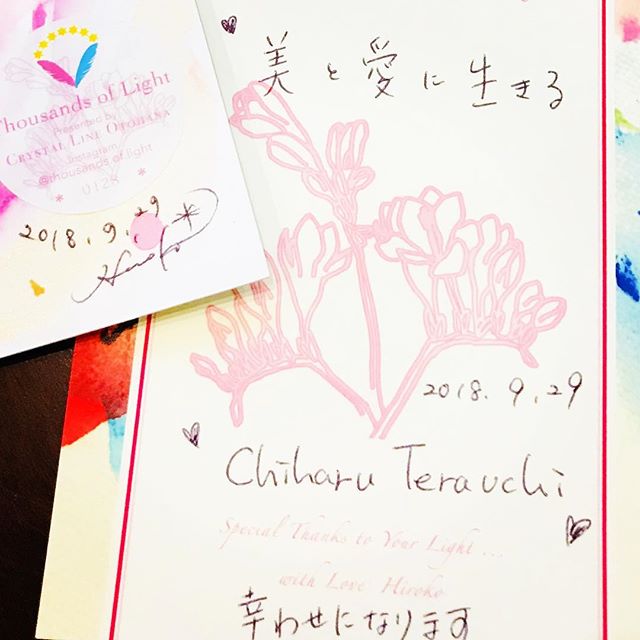 Thousands of Light
Presented by
CRYSTAL LINE OTOHANA
Instagram
@thousands.of.light
* 0128 *
2018.9.29
美と愛に生きる
2018.9.29
Chiharu Terauchi
Special Thanks to Your Light ...
with Love Hiroko
幸わせになります